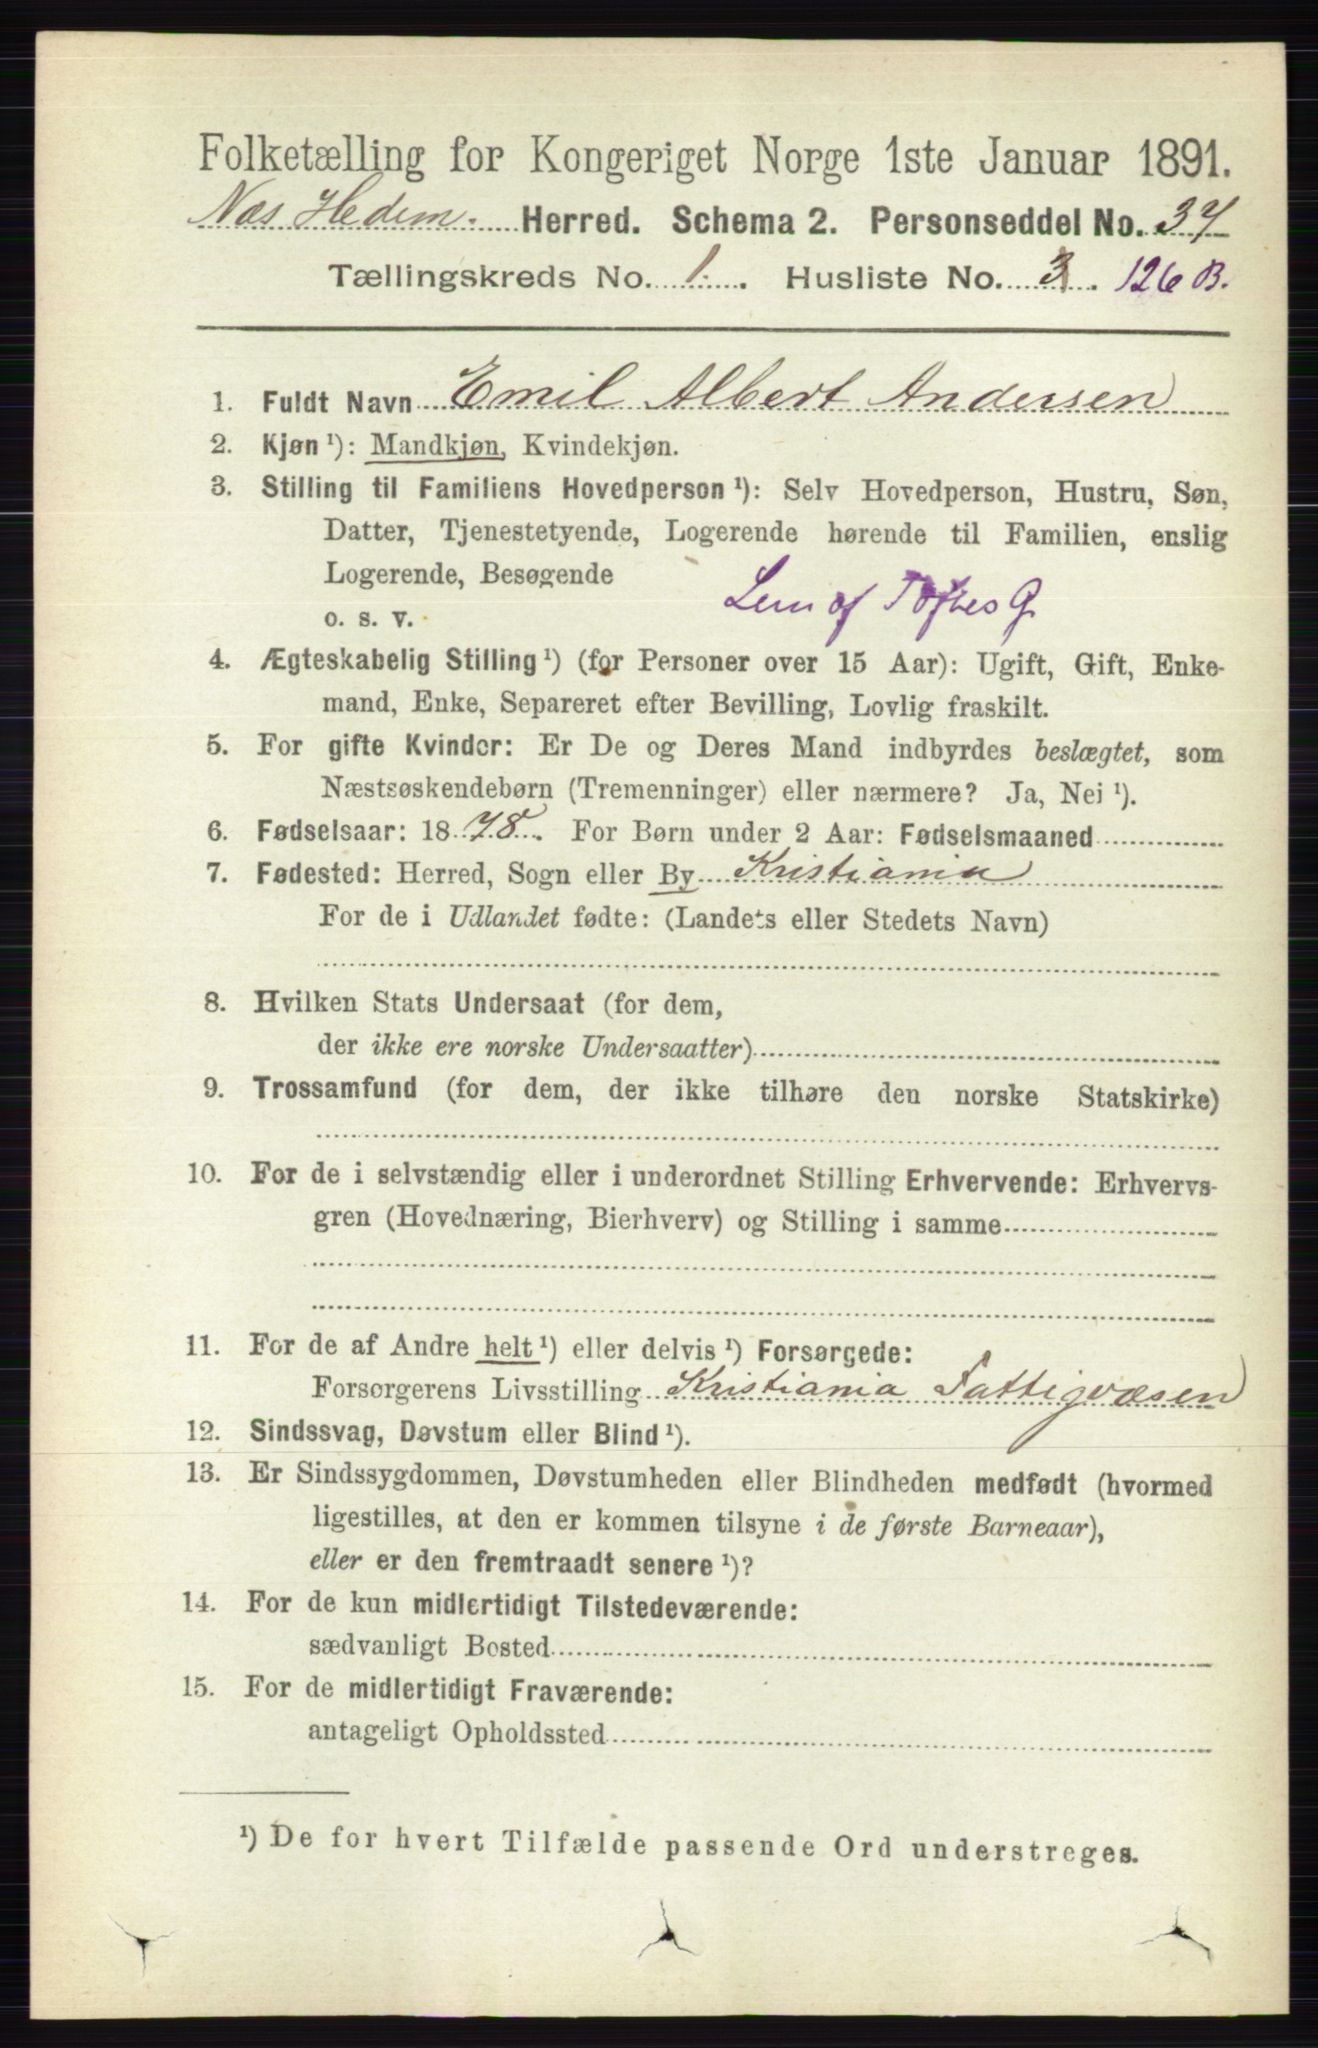 Folketælling for Kongeriget Norge 1ste Januar 1891.
Næs Hedem. Herred. Schema 2. Personseddel No. 37
Tællingskreds No. 1. Husliste No. 3. 126 B.
1. Fuldt Navn Emil Albert Andersen
2. Kjøn ¹): Mandkjøn, Kvindekjøn.
3. Stilling til Familiens Hovedperson ¹): Selv Hovedperson, Hustru, Søn,
Datter, Tjenestetyende, Logerende hørende til Familien, enslig
Logerende, Besøgende
o. s. v. Lem af Toftes G.
4. Ægteskabelig Stilling ¹) (for Personer over 15 Aar): Ugift, Gift, Enke-
mand, Enke, Separeret efter Bevilling, Lovlig fraskilt.
5. For gifte Kvinder: Er De og Deres Mand indbyrdes beslægtet, som
Næstsøskendebørn (Tremenninger) eller nærmere? Ja, Nei ¹).
6. Fødselsaar: 1878. For Børn under 2 Aar: Fødselsmaaned
7. Fødested: Herred, Sogn eller By Kristiania
For de i Udlandet fødte: (Landets eller Stedets Navn)
8. Hvilken Stats Undersaat (for dem,
der ikke ere norske Undersaatter)
9. Trossamfund (for dem, der ikke tilhøre den norske Statskirke)
10. For de i selvstændig eller i underordnet Stilling Erhvervende: Erhvervs-
gren (Hovednæring, Bierhverv) og Stilling i samme
11. For de af Andre helt ¹) eller delvis ¹) Forsørgede:
Forsørgerens Livsstilling Kristiania Fattigvæsen
12. Sindssvag, Døvstum eller Blind ¹).
13. Er Sindssygdommen, Døvstumheden eller Blindheden medfødt (hvormed
ligestilles, at den er kommen tilsyne i de første Barneaar),
eller er den fremtraadt senere ¹)?
14. For de kun midlertidigt Tilstedeværende:
sædvanligt Bosted
15. For de midlertidigt Fraværende:
antageligt Opholdssted
¹) De for hvert Tilfælde passende Ord understreges.